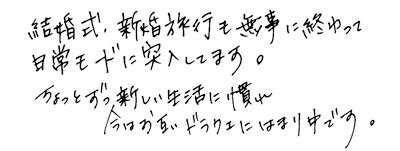 結婚式、新婚旅行も無事に終わって
日常モードに突入してます。
ちょっとずつ新しい生活に慣れ
今はお互いドラクエにはまり中です。